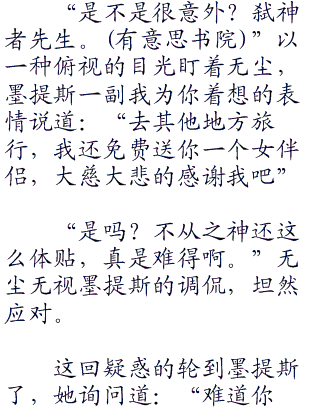 “是不是很意外？弑神
者先生。(有意思书院)”以
一种俯视的目光盯着无尘，
墨提斯一副我为你着想的表
情说道：“去其他地方旅
行，我还免费送你一个女伴
侣，大慈大悲的感谢我吧”
“是吗？不从之神还这
么体贴，真是难得啊。”无
尘无视墨提斯的调侃，坦然
应对。
这回疑惑的轮到墨提斯
了，她询问道：“难道你